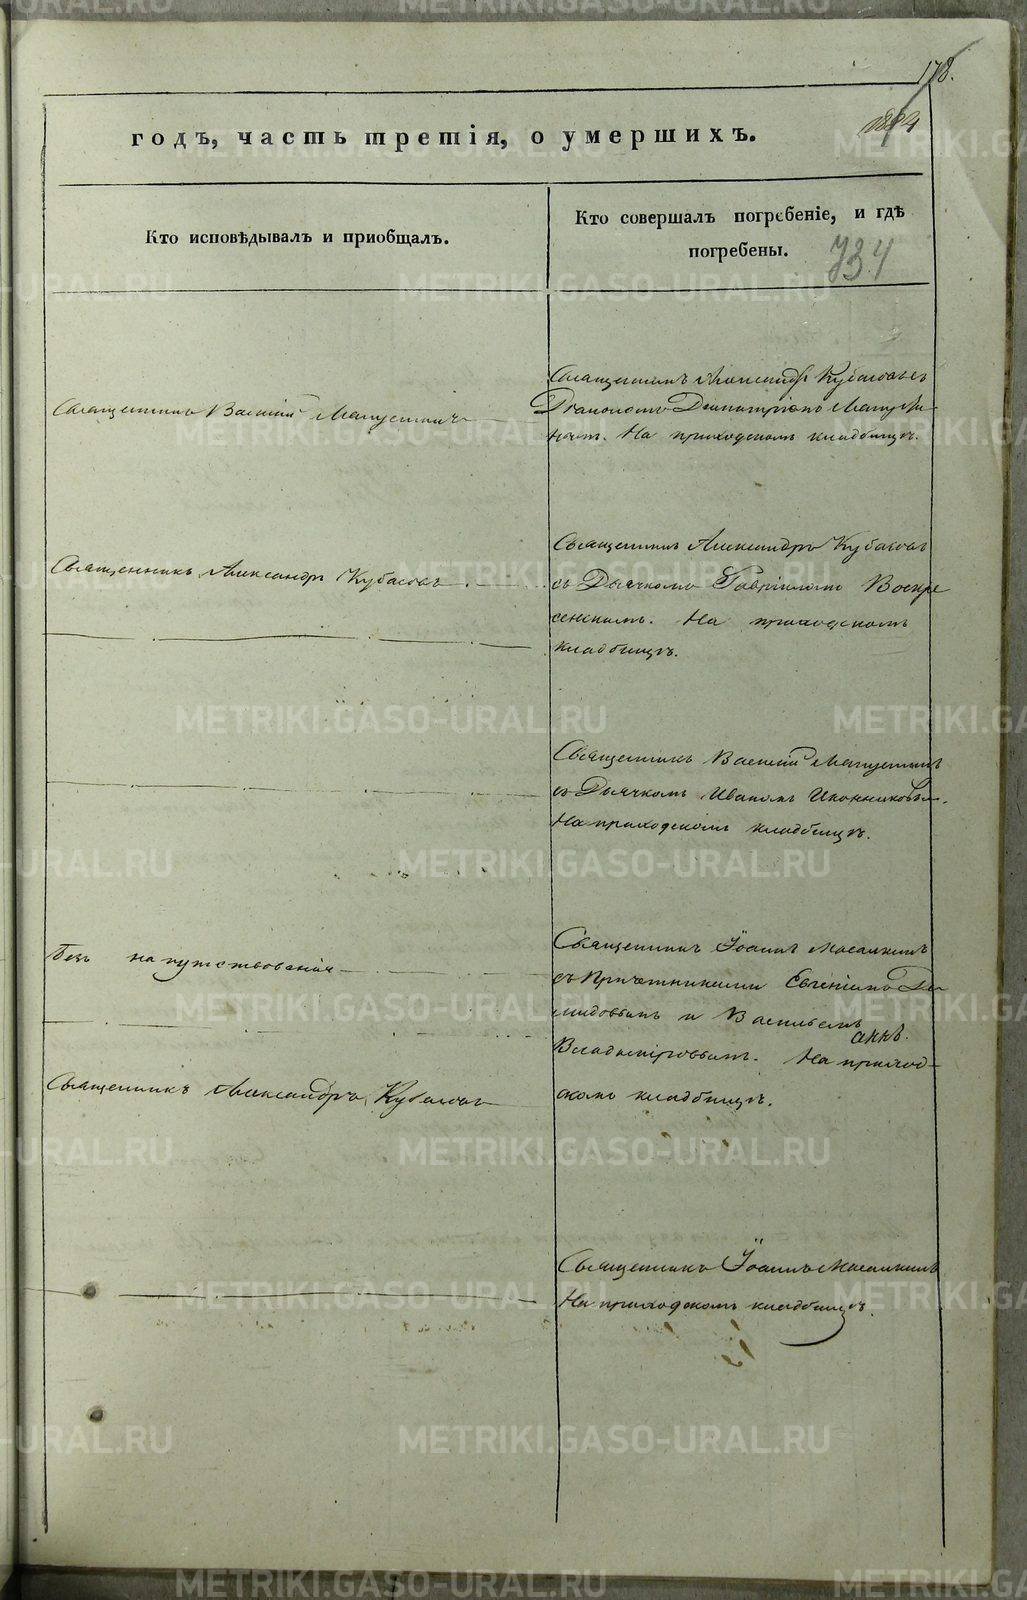 178.
годъ, часть третія, о умершихъ.
Кто исповѣдывалъ и приобщалъ.
Кто совершалъ погребеніе, и гдѣ
погребены.
734
Священникъ Александръ Кубасовъ съ
Священникъ Василій
Діакономъ Димитріемъ
На приходскомъ кладбищѣ.
Священникъ Александръ Кубасовъ
Священникъ Александръ Кубасовъ
съ Дьячкомъ Гавріиломъ Воскре
сенскимъ. На приходскомъ
кладбищѣ.
Священникъ Василій
съ Дьячкомъ Иваномъ Иконниковымъ.
На приходскомъ кладбищѣ.
Священникъ Іоаннъ
безъ напутствованія
съ Причетниками Евгеніемъ Де
мидовымъ и Василіемъ
Владимировымъ. На приход-
Священникъ Александръ Кубасовъ
скомъ кладбищѣ.
Священникъ Іоаннъ
На приходскомъ кладбищѣ.
METRIKI.GASO-URAL.RU